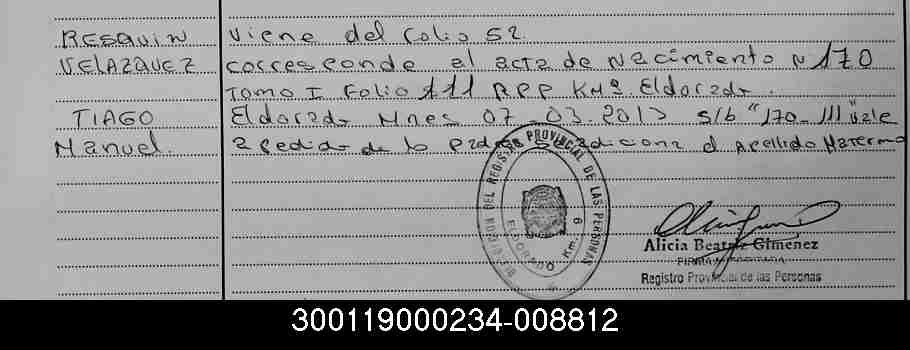 RESQUIN
VELAZQUEZ
TIAGO
Manuel.
Viene del Folio 52
corresponde al acta de Nacimiento N 170
Tomo I Folio 111 RPP Km 9 Eldorado.
Eldorado Mnes 07-03-2013 s/b "170-111" Vale
a Pedido de lo Padres Se adiciona el Apellido Materno
DEL REGISTRO PROVINCIAL DE LAS PERSONAS
ELDORADO Km. 9
Alicia Beatriz Gimenez
FIRMA AUTORIZADA
Registro Provincial de las Personas
300119000234-008812